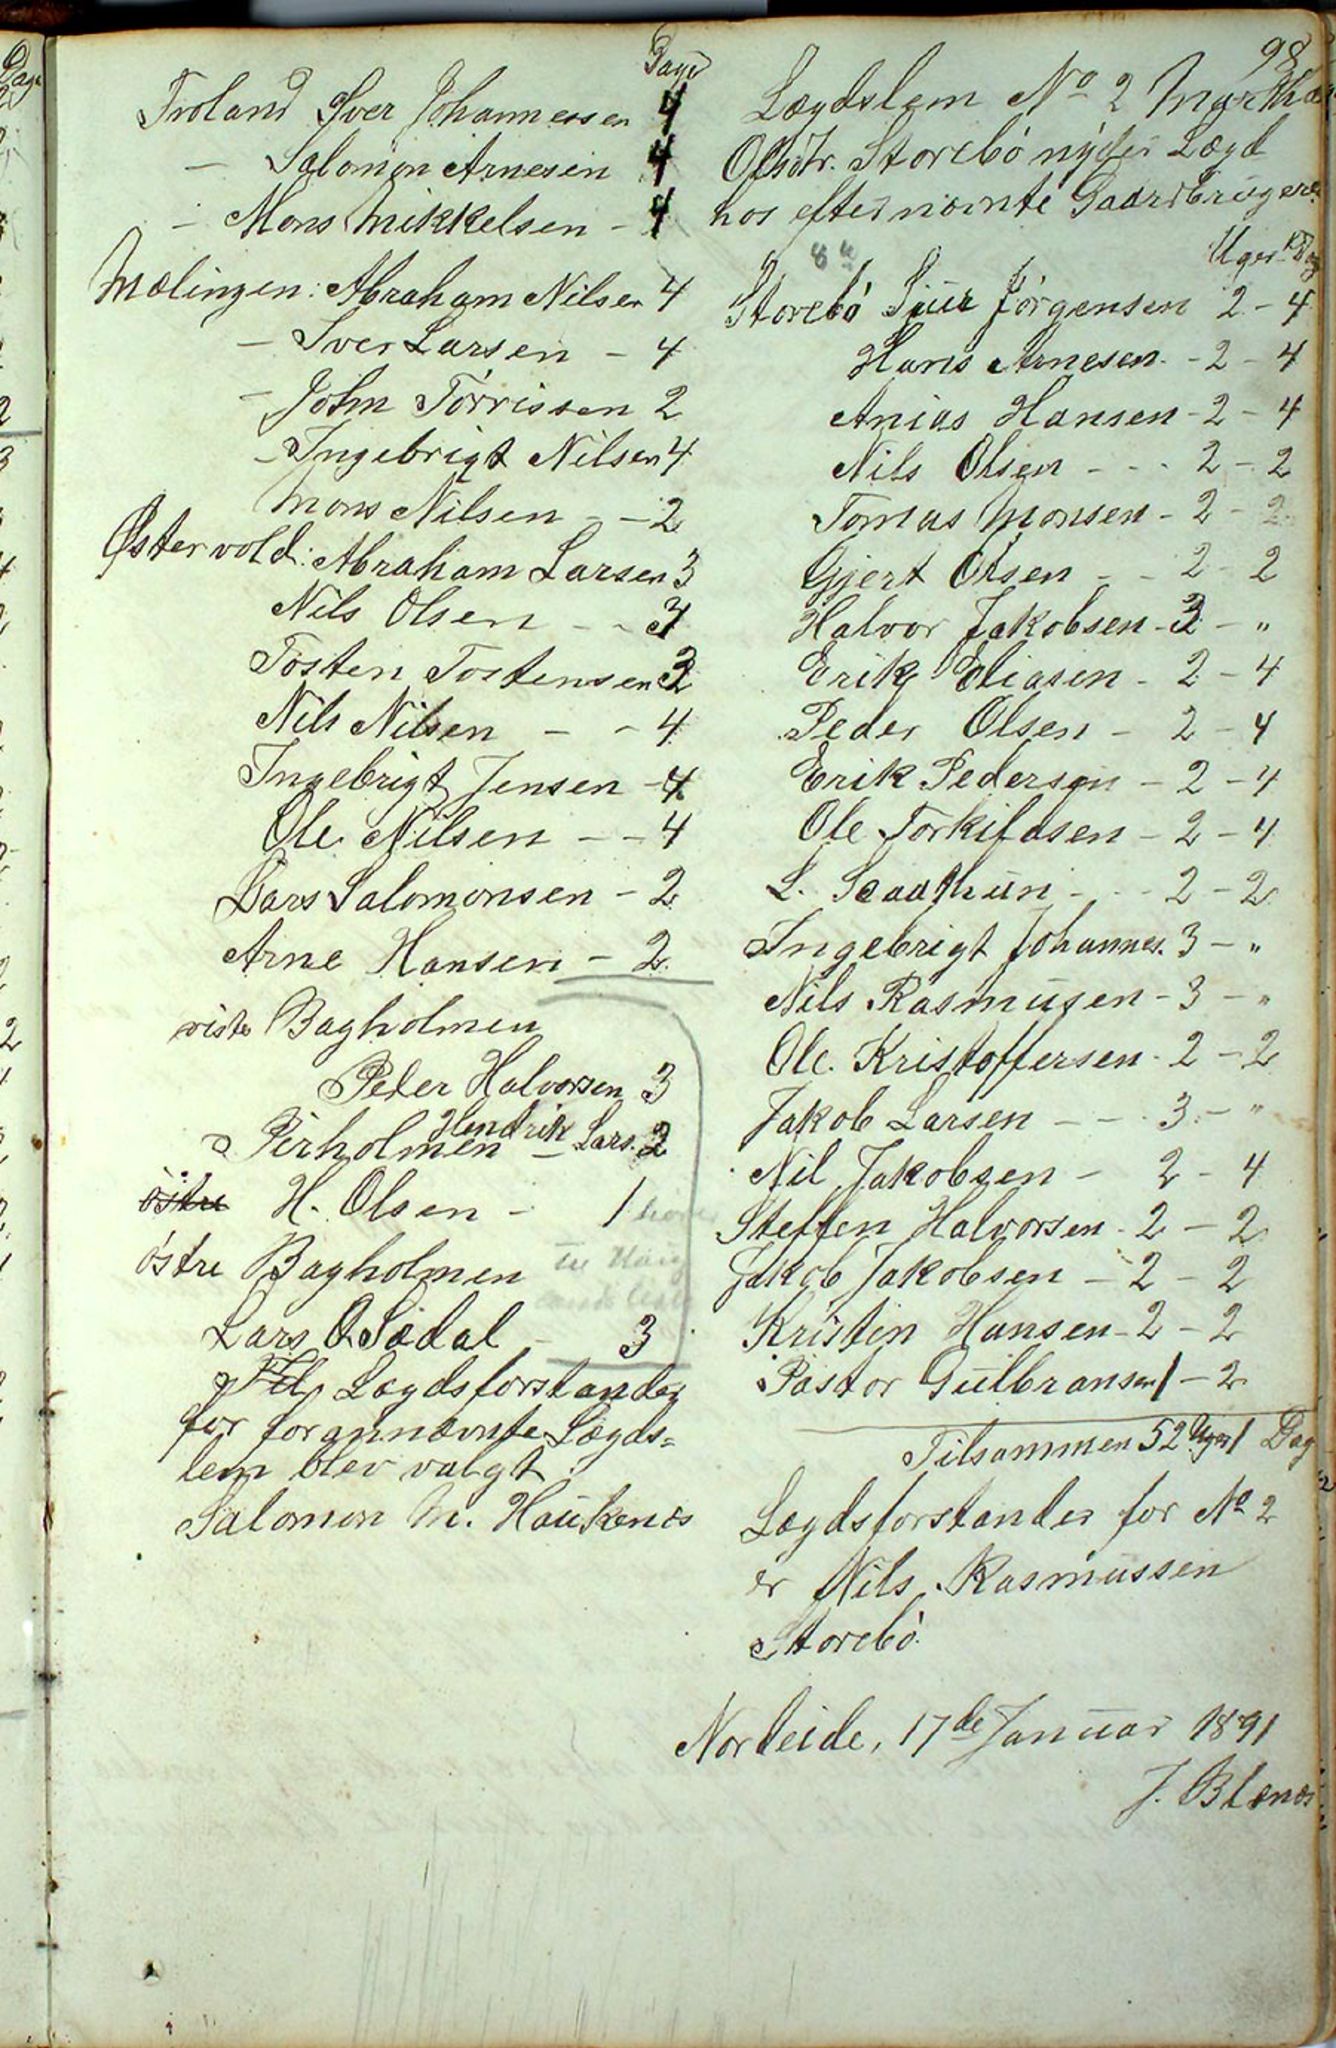 98
Dage
Troland Iver Johannessen 4
— Salomon Arnesen 4
— Mons Mikkelsen – 4
Mælingen: Abraham Nilsen 4
— Iver Larsen – 4
– John Torrissen 2
– Ingebrigt Nilsen 4
Mons Nilsen – – 2
Østervold: Abraham Larsen 3
Nils Olsen – – 3
Tosten Tostensen 3
Nils Nilsen – – 4
Ingebrigt Jensen – 4
Ole Nilsen – – 4
Lars Salomonsen – 2
Arne Hansen – 2
vistr Bagholmen
Peder Halvorsen 3
Pirholmen – Hendrik Lars. 2
östre H. Olsen – 1
östre Bagholmen
Lars O Sædal – 3
Til Lægdsforstander
for forannævnte Lægds=
lem blev valgt
Salomon M. Haukenæs
Lægdslem No 2 Martha
Olsdtr. Storebö nyder Lægd
hos efternævnte Gaardbrugere
Uger Dag
Storebö Sjur Jörgensen 2 – 4
Hans Arnesen – 2 – 4
Anias Hansen – 2 – 4
Nils Olsen – – - 2 – 2
Tomas Monsen – 2 – 2
Gjert Olsen – – 2 – 2
Halvor Jakobsen – 3 – "
Erik Eliasen – 2 – 4
Peder Olsen – 2 – 4
Erik Pedersen – 2 – 4
Ole Torkildsen – 2 – 4
L. Scadthun – - - 2 – 2
Ingebrigt Johannes. 3 – "
Nils Rasmusen – 3 – "
Ole Kristoffersen – 2 – 2
Jakob Larsen – – - 3 – "
Nil Jakobsen – 2 – 4
Steffen Halvorsen – 2 – 2
Jakob Jakobsen – 2 – 2
Kristin Hansen – 2 – 2
Pastor Gulbransen 1 – 2
Tilsammen 52 Uger 1 Dag
Lægdsforstander for No 2
er Nils Rasmussen
Storebö.
Norteide, 17de Januar 1891
J. Blænes